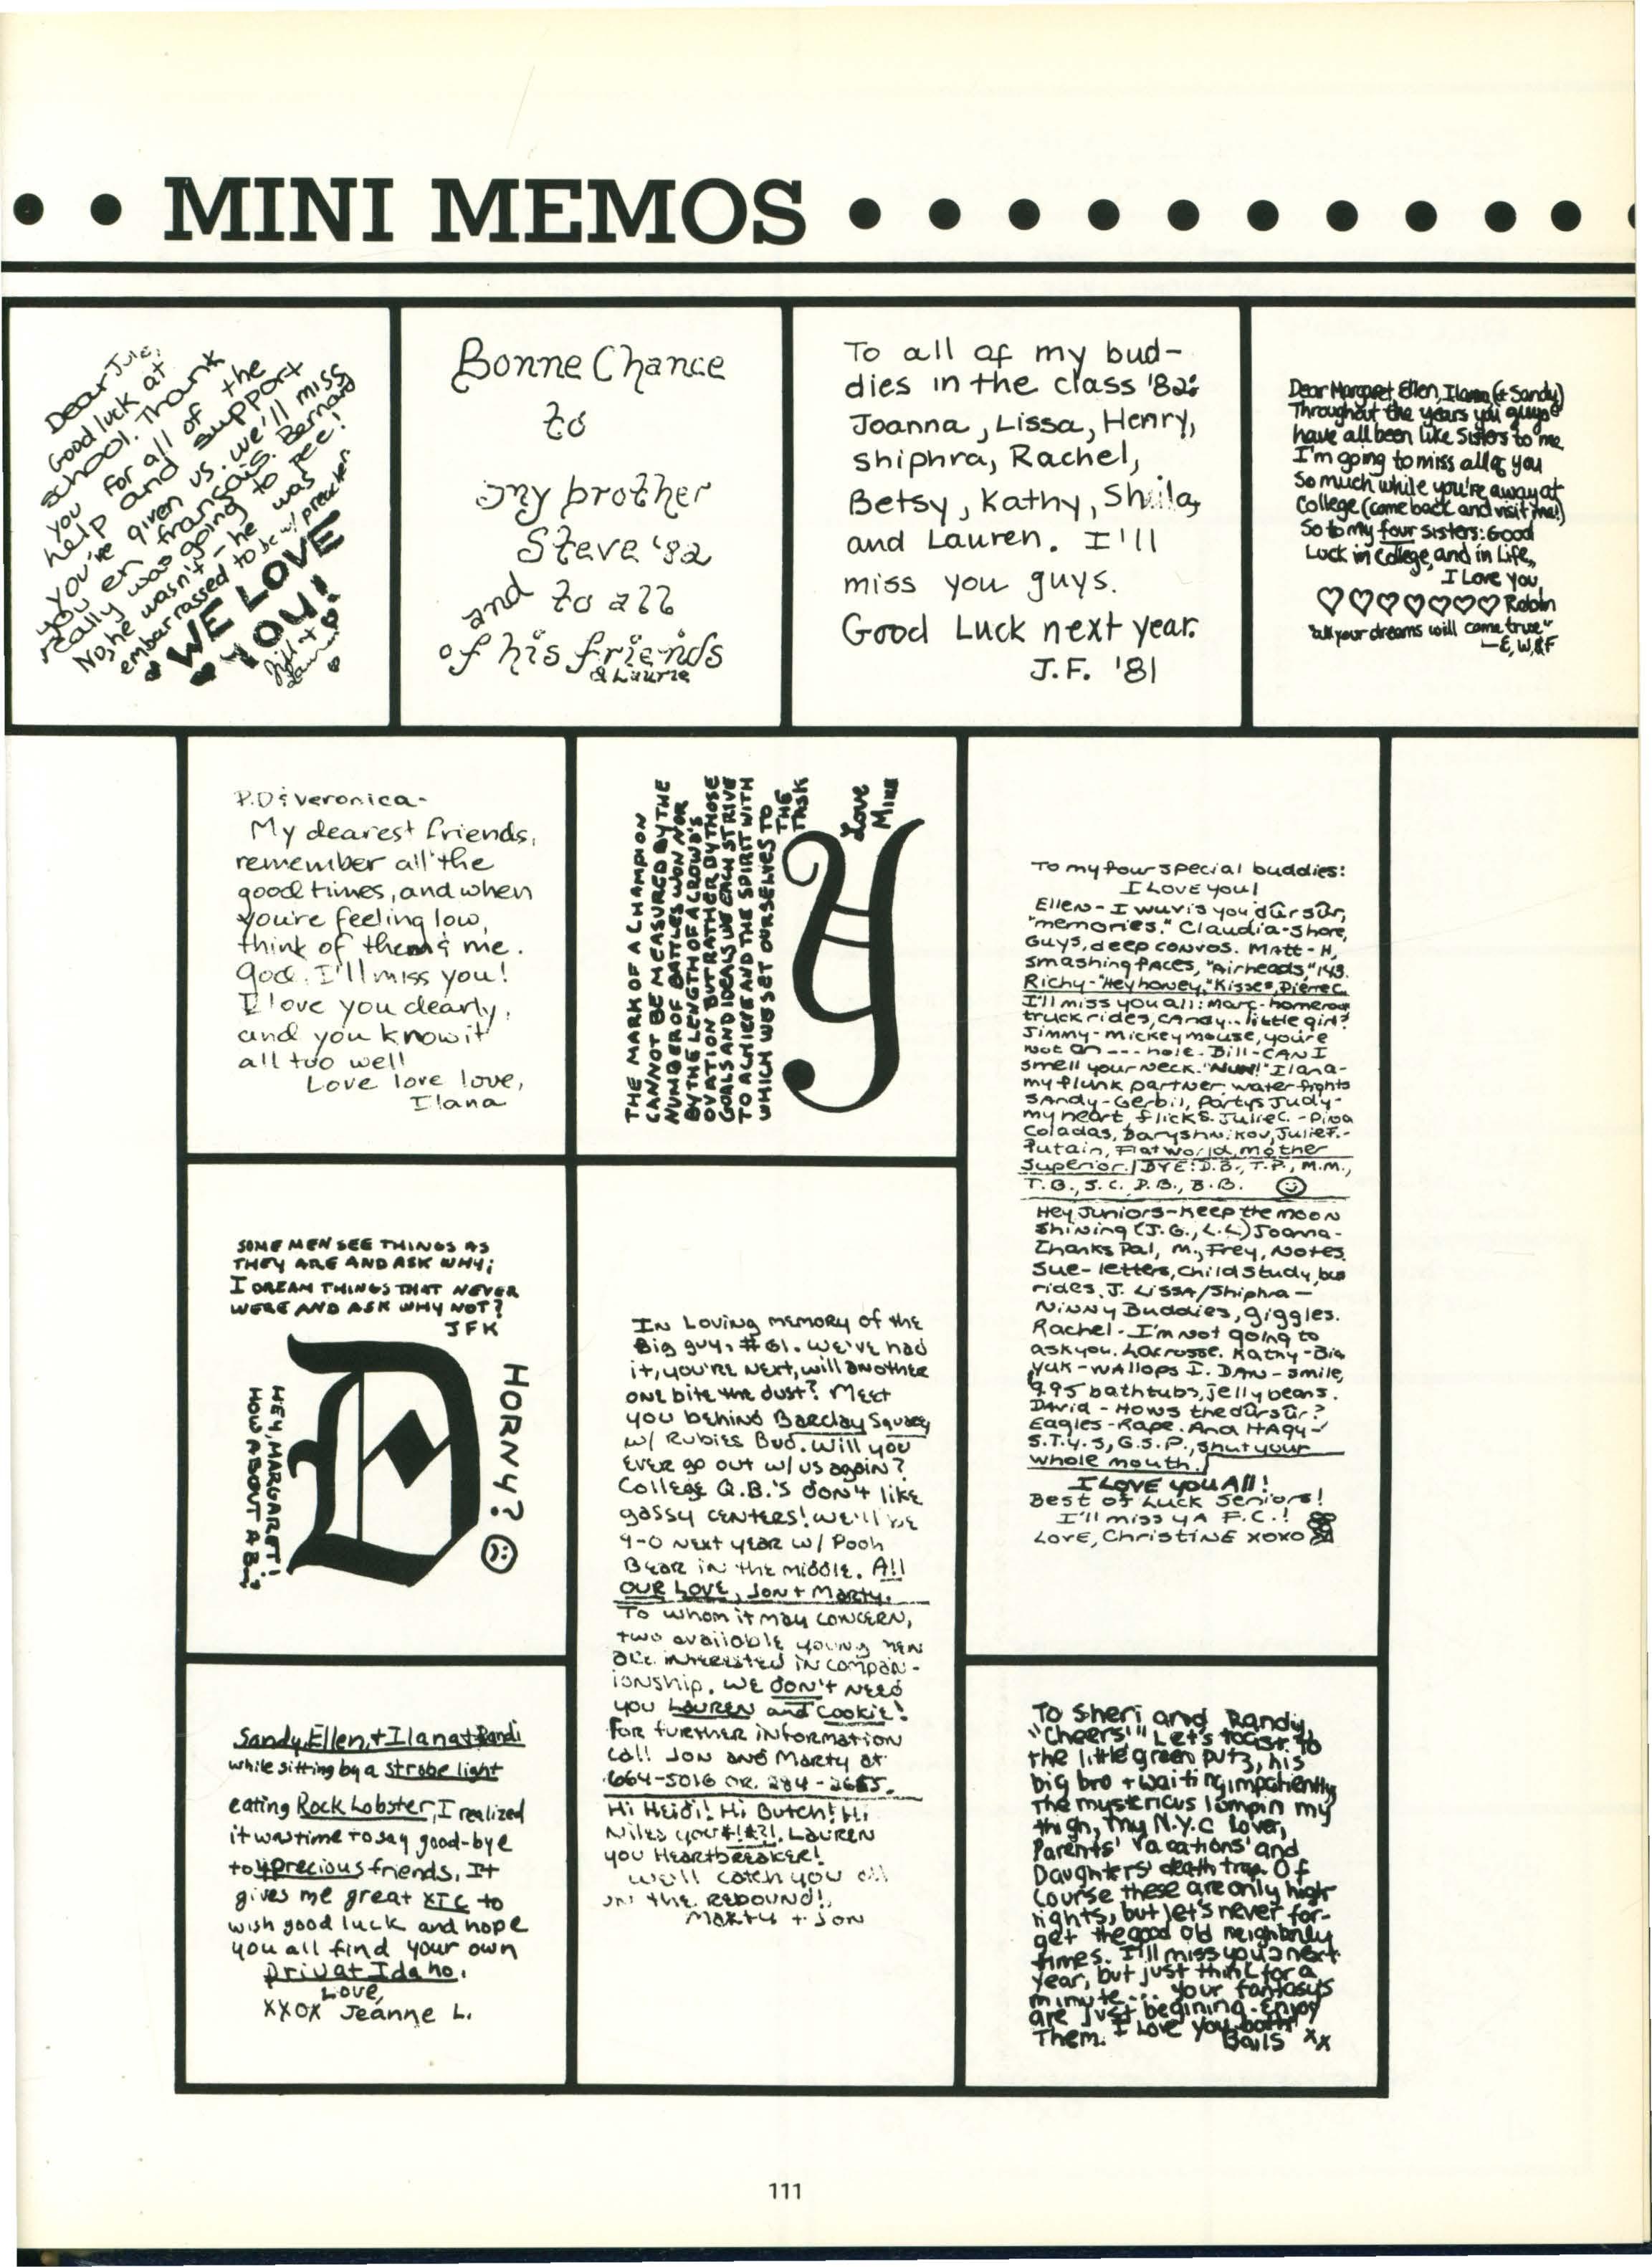 MINI MEMOS
Dear Julie,
Good luck at
school. Thank
you for all of the
help and support
you've given us. we'll miss
you en français. Bernard
really was going to pee!
No, he wasn't - he was
embarrassed to be w/ preacher.
WE LOVE
YOU!
Jill +
Bonne Chance
to
my brother
Steve '82
and to all
of his friends
& Laurie
To all of my bud-
dies in the class '82:
Joanna, Lissa, Henry,
Shiphra, Rachel,
Betsy, Kathy, Sheila,
and Lauren. I'll
miss you guys.
Good Luck next year.
J.F. '81
Dear Margaret, Ellen, Ilana, (+ Sandy)
Throughout the years you guys
have all been like Sisters to me.
I'm going to miss all of you
So much while you're away at
College (come back and visit me!)
So to my four sisters: Good
Luck in College, and in Life,
I Love you,
♡♡♡♡♡♡♡ Robin
"all your dreams will come true"
—E,W,&F
P.D & Veronica-
My dearest friends,
remember all the
good times, and when
you're feeling low,
think of them & me.
God. I'll miss you!
I love you dearly,
and you know it
all too well
Love love love,
Ilana
THE MARK OF A CHAMPION
CANNOT BE MEASURED BY THE
NUMBER OF BATTLES WON NOR
BY THE LENGTH OF A CROWD'S
OVATION BUT RATHER BY THOSE
GOALS AND IDEALS WE EACH STRIVE
TO ACHIEVE AND THE SPIRIT WITH
WHICH WE SET OURSELVES TO
THE
TASK
Love
Mike
Y
To my four special buddies:
I Love you!
Ellen - I wuvis you dûr sûr,
"memories." Claudia - Shore,
Guys, deep convos. Matt - H,
smashing faces, "Airheads," 143.
Richy - "Hey honey," Kisses, Pierre C.
I'll miss you all: Marc - homeroom
truck rides, candy... little girl?
Jimmy - Mickey mouse, you're
not an --- hole. Bill - CAN I
smell your neck. "NUH!" Ilana -
my flunk partner, water fights
Sandy - Gerbil, Partys Judy -
my heart, flicks. Julie C. - Pina
Coladas, Baryshnikov, Julie F. -
Putain, Flat World, mother
Superior. BYE: D.B., T.P., M.M.,
T.B., J.C., P.B., B.B. ☺
Hey Juniors - Keep the moon
Shining (J.G., L.L) Joanna -
Thanks Pal, M., Frey, Notes
Sue - letters, child study, bus
rides, J. Lissa/Shiphra —
Ninny Buddies, giggles.
Rachel - I'm not going to
ask you. Lacrosse. Kathy - Big
yuk - wallops I. Dan - smile,
9.95 bathtubs, jelly beans.
David - Hows the dûr sûr?
Eagles - Rape. And HAgy -
S.T.Y.S, G.S.P., shut your
whole mouth.
I LOVE you All!
Best of Luck Seniors!
I'll miss yA F.C.!
Love, Christine xoxo
SOME MEN SEE THINGS AS
THEY ARE AND ASK WHY;
I DREAM THINGS THAT NEVER
WERE AND ASK WHY NOT?
JFK
D
HORNY? ☹
HEY, MARGARET!
HOW ABOUT A B__?
In Loving memory of the
Big guy, # 61. We've had
it, you're next, will another
one bite the dust? Meet
you behind Barclay Square
w/ Rubies Bud. Will you
ever go out w/ us again?
College Q.B.'s don't like
gassy centers! We'll be
9-0 next year w/ Pooh
Bear in the middle. All
our Love, Jon + Marty.
To whom it may concern,
two available young men
are interested in compan-
ionship. We don't need
you Lauren and Cookie!
For further information
call Jon and Marty at
664-5016 or 284-2655.
Hi Heidi! Hi Butch! Hi
Niles you #!*?!. Lauren
you Heartbreaker!
We'll catch you all
on the rebound!
Marty + Jon
Sandy, Ellen, + Ilana + Randi
while sitting by a strobe light
eating Rock Lobster, I realized
it was time to say good-bye
to 4 precious friends. It
gives me great XTC to
wish good luck and hope
you all find your own
privat Idaho.
Love,
XXOX Jeanne L.
To Sheri and Randy,
"Cheers!" Let's toast to
the little green putz, his
big bro + waiting impatiently
The mysterious lump in my
thigh, my N.Y.C lover,
Parents' Vacations' and
Daughters' death trap. Of
course these are only high
lights, but let's never for-
get the good old neighborly
times. I'll miss you 2 next
year, but just think for a
minute... your fantasys
are just begining. Enjoy
Them. I Love You both
Bails xx
111